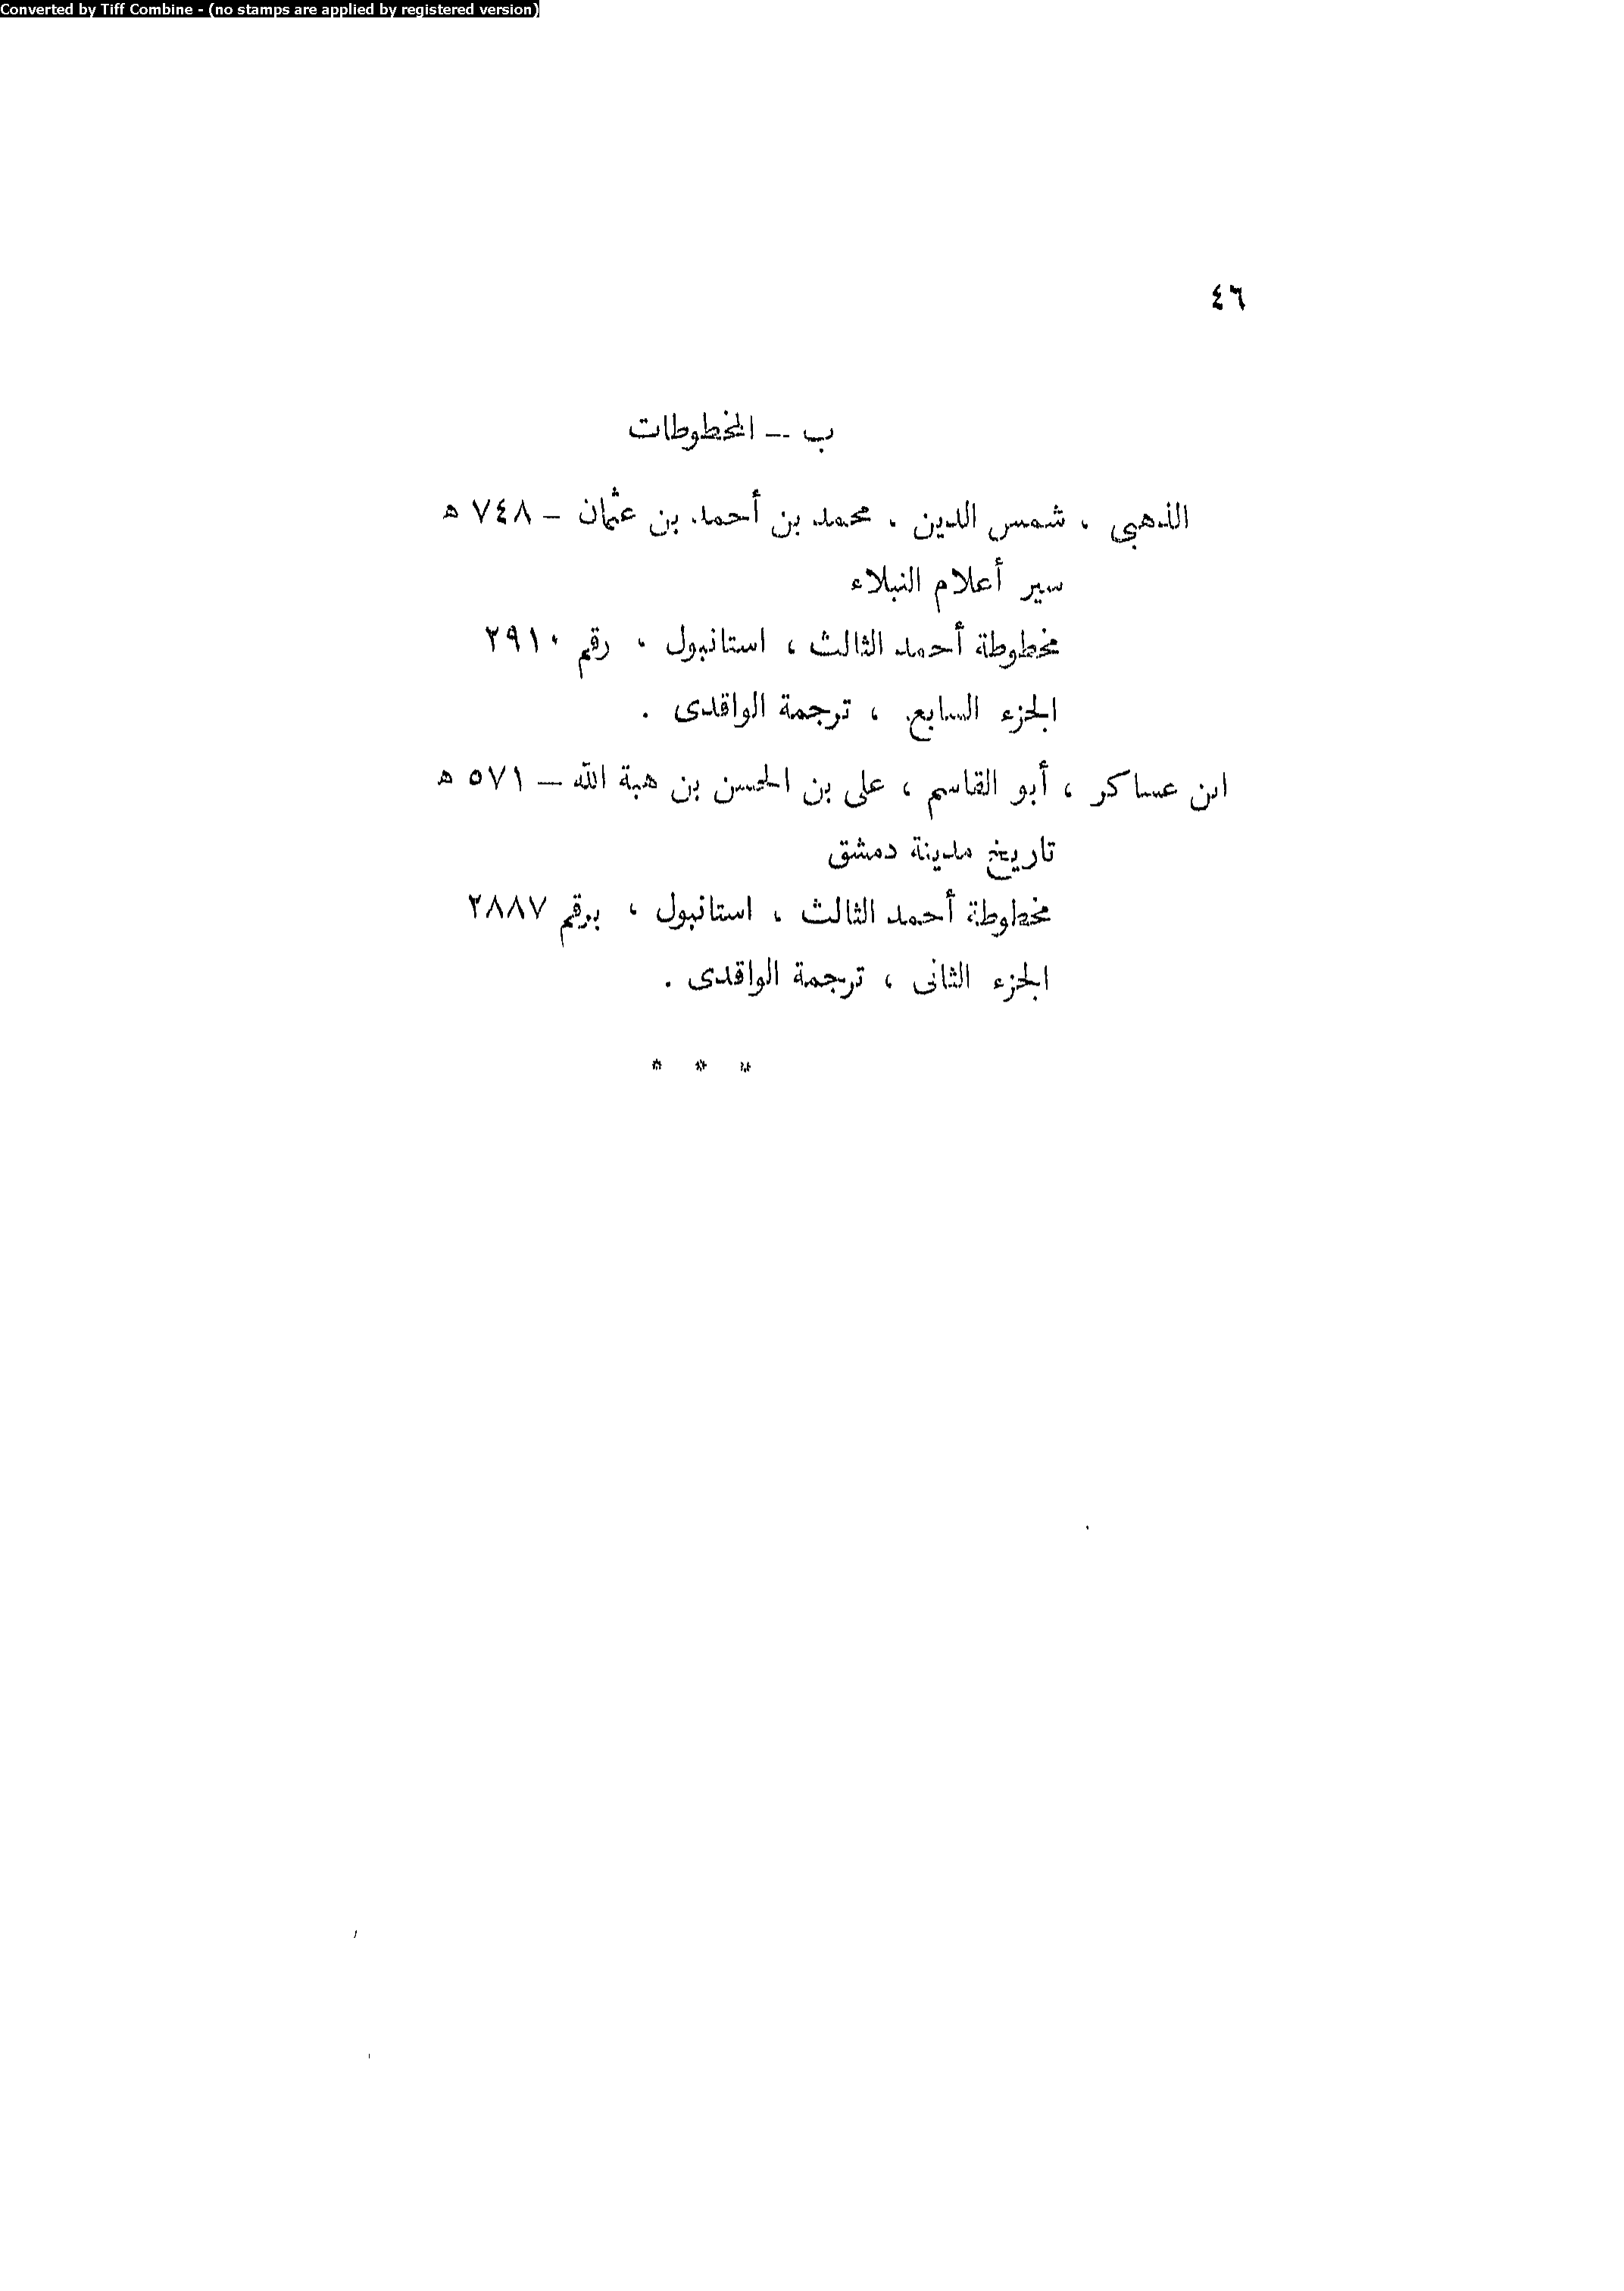 Converted by Tiff Combine - (no stamps are applied by registered version)
٤٦
ب – المخطوطات
الذهبى ، شمس الدين ، محمد بن أحمد بن عثمان – ٧٤٨ ه
سير أعلام النبلاء
مخطوطة أحمد الثالث ، استانبول ، رقم ٢٩١٠
الجزء السابع ، ترجمة الواقدى .
ابن عساكر ، أبو القاسم ، على بن الحسن بن هبة الله – ٥٧١ ه
تاريخ مدينة دمشق
مخطوطة أحمد الثالث ، استانبول ، برقم ٢٨٨٧
الجزء الثانى ، ترجمة الواقدى .
* * *